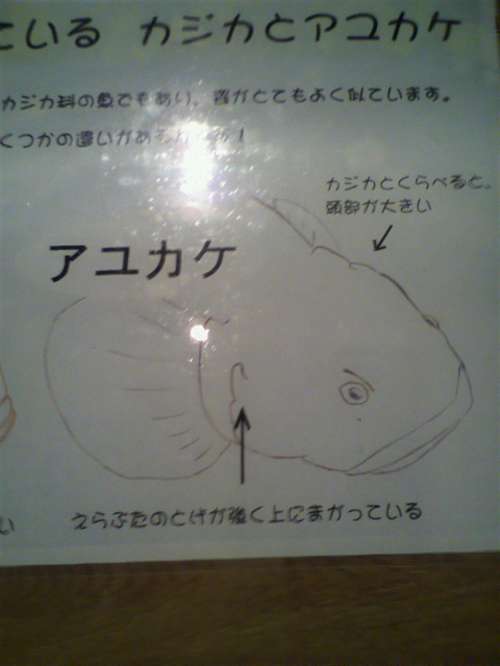 ている カジカとアユカケ
カジカ科の魚でもあり、姿がとてもよく似ています。
くつかの違いがあ
カジカとくらべると、
頭部が大きい
アユカケ
い
えらぶたのとげが強く上にまがっている